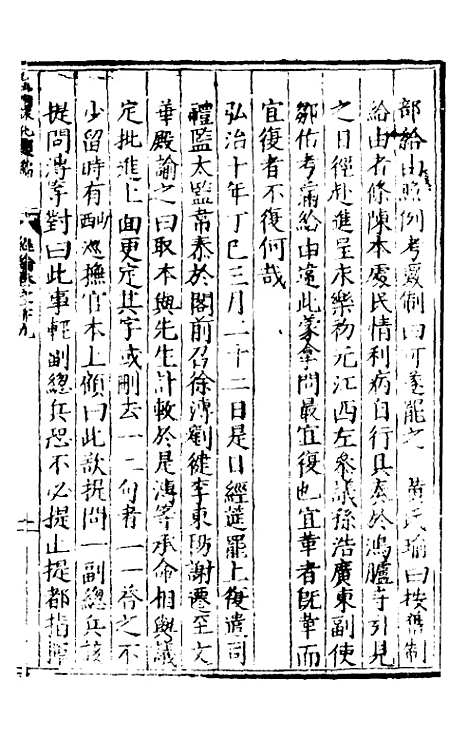 部給由照例考覈制曰可遂罷之 黄氏瑜曰按舊制
給由者條陳本處民情利病自行具奏於鴻臚寺引見
之日徑赴進呈永樂初元江西左參議孫浩廣東副使
鄒佑考滿給由違此蒙拿問最宜復也宜革者既革而
宜復者不復何哉
弘治十年丁巳三月二十二日是日經筵罷上復遣司
禮監太監常泰於閣前召徐溥劉健李東陽謝遷至文
華殿諭之曰取本與先生計較於是溥等承命相與議
定批進上面更定其字或刪去一二句者一一答之不
少留時有山西巡撫官本上顧曰此欲提問一副總兵該
提問溥等對曰此事輕副總兵恐不必提止提都指揮